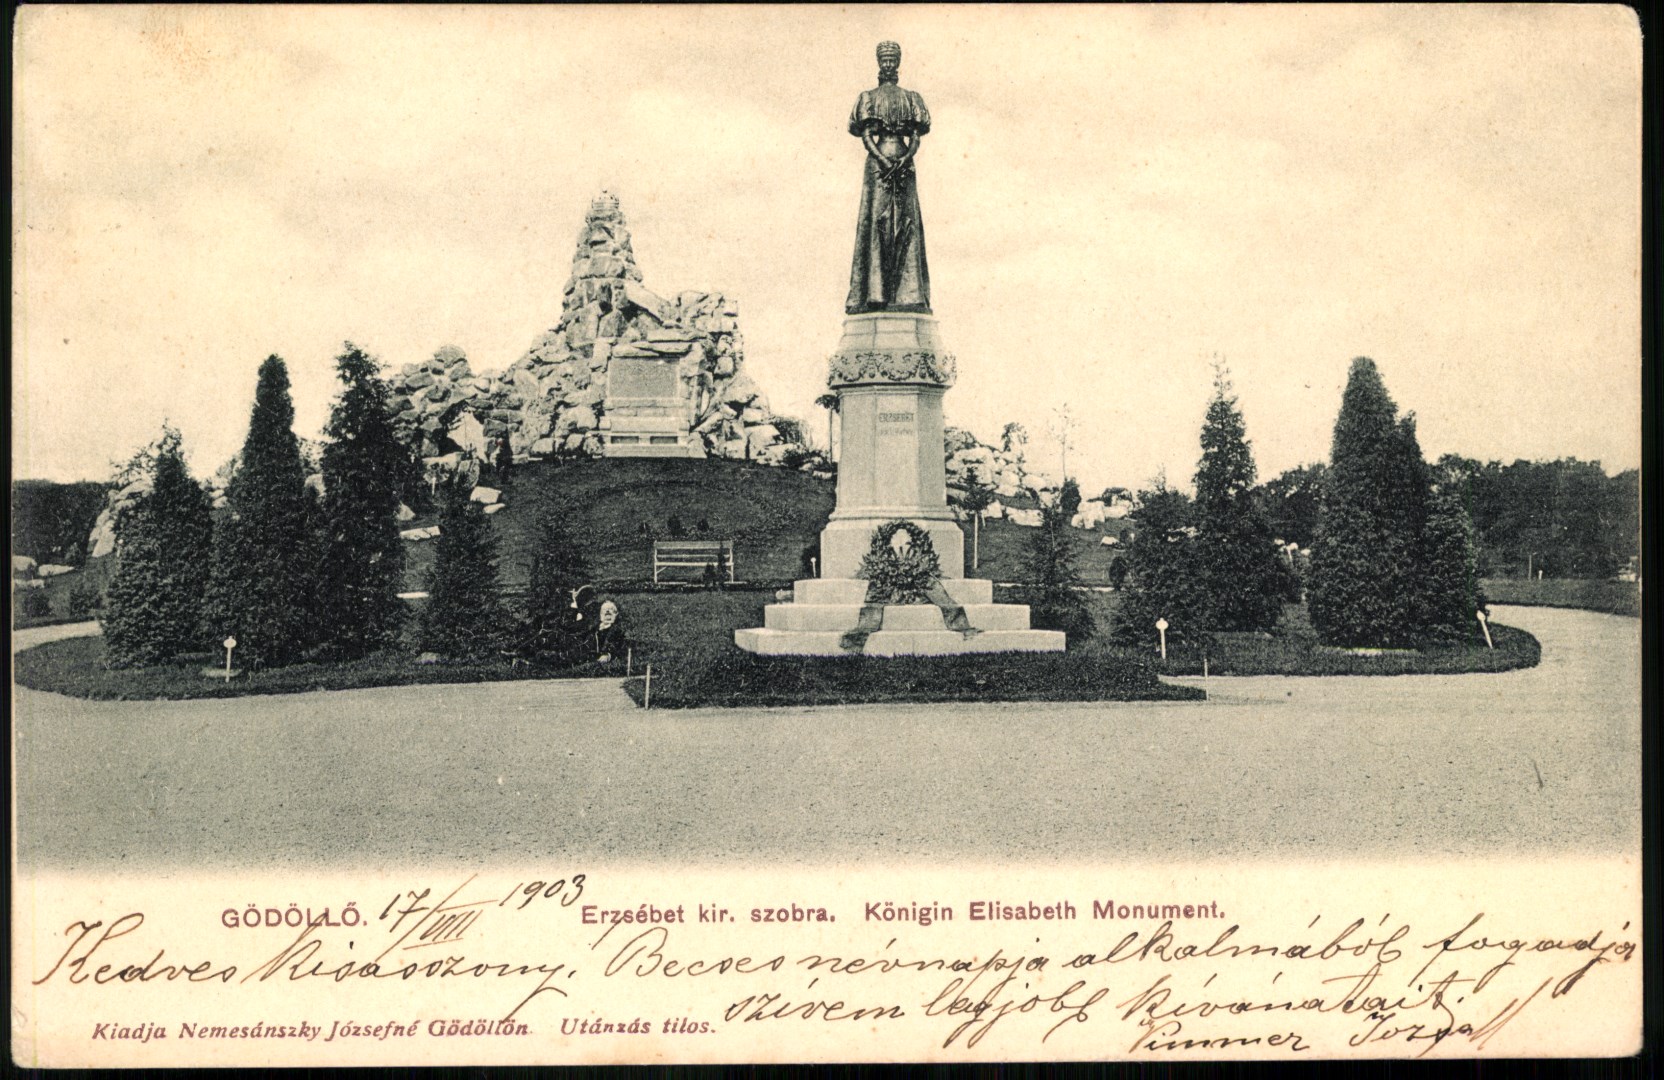 ERZSÉBET
GÖDÖLLŐ. 17/VIII 1903 Erzsébet kir. szobra. Königin Elisabeth Monument.
Kedves Kisasszony. Becses névnapja alkalmából fogadja
szívem legjobb kívánatait.
Kiadja Nemesánszky Józsefné Gödöllőn. Utánzás tilos.
Vimmer